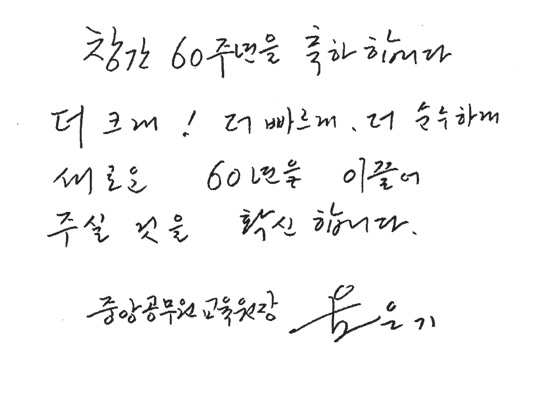 창간 60주년을 축하합니다
더 크게! 더 빠르게. 더 순수하게
새로운 60년을 이끌어
주실 것을 확신합니다.
중앙공무원교육원장 윤은기